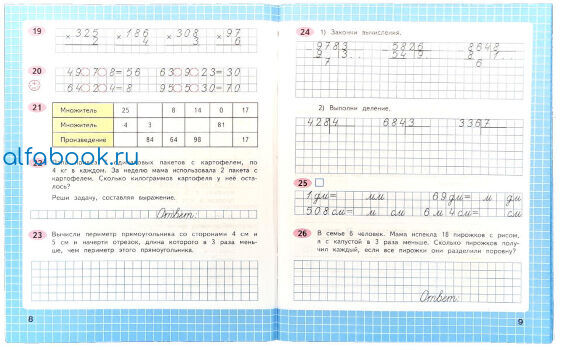 19
× 325 × 186 × 308 × 97
2 4 3 6
20
49○7○8=56 63○9○23=30
64○2○4=8 95○5○30=70
21
Множитель 25 8 14 0 17
Множитель 4 3 81
Произведение 84 64 98 17
alfabook.ru
пакетов с картофелем, по
4 кг в каждом. За неделю мама использовала 2 пакета с
картофелем. Сколько килограммов картофеля у неё оста-
лось?
Реши задачу, составляя выражение.
Ответ:
23
Вычисли периметр прямоугольника со сторонами 4 см и
5 см и начерти отрезок, длина которого в 3 раза мень-
ше, чем периметр этого прямоугольника.
8
24
1) Закончи вычисления.
9783 5826 8648
9 13... 5419 8 17...
7 6
2) Выполни деление.
428 4 684 3 336 7
25
1 дм= мм 69 дм= м дм
508 см= м см 6 м 4 см= см
26
В семье 6 человек. Мама испекла 18 пирожков с рисом,
а с капустой в 3 раза меньше. Сколько пирожков полу-
чил каждый, если все пирожки они разделили поровну?
Ответ:
9